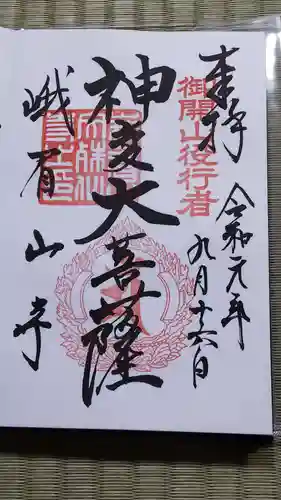 奉拝
令和元年
九月十六日
御開山役行者
神変大菩薩
峨眉山寺